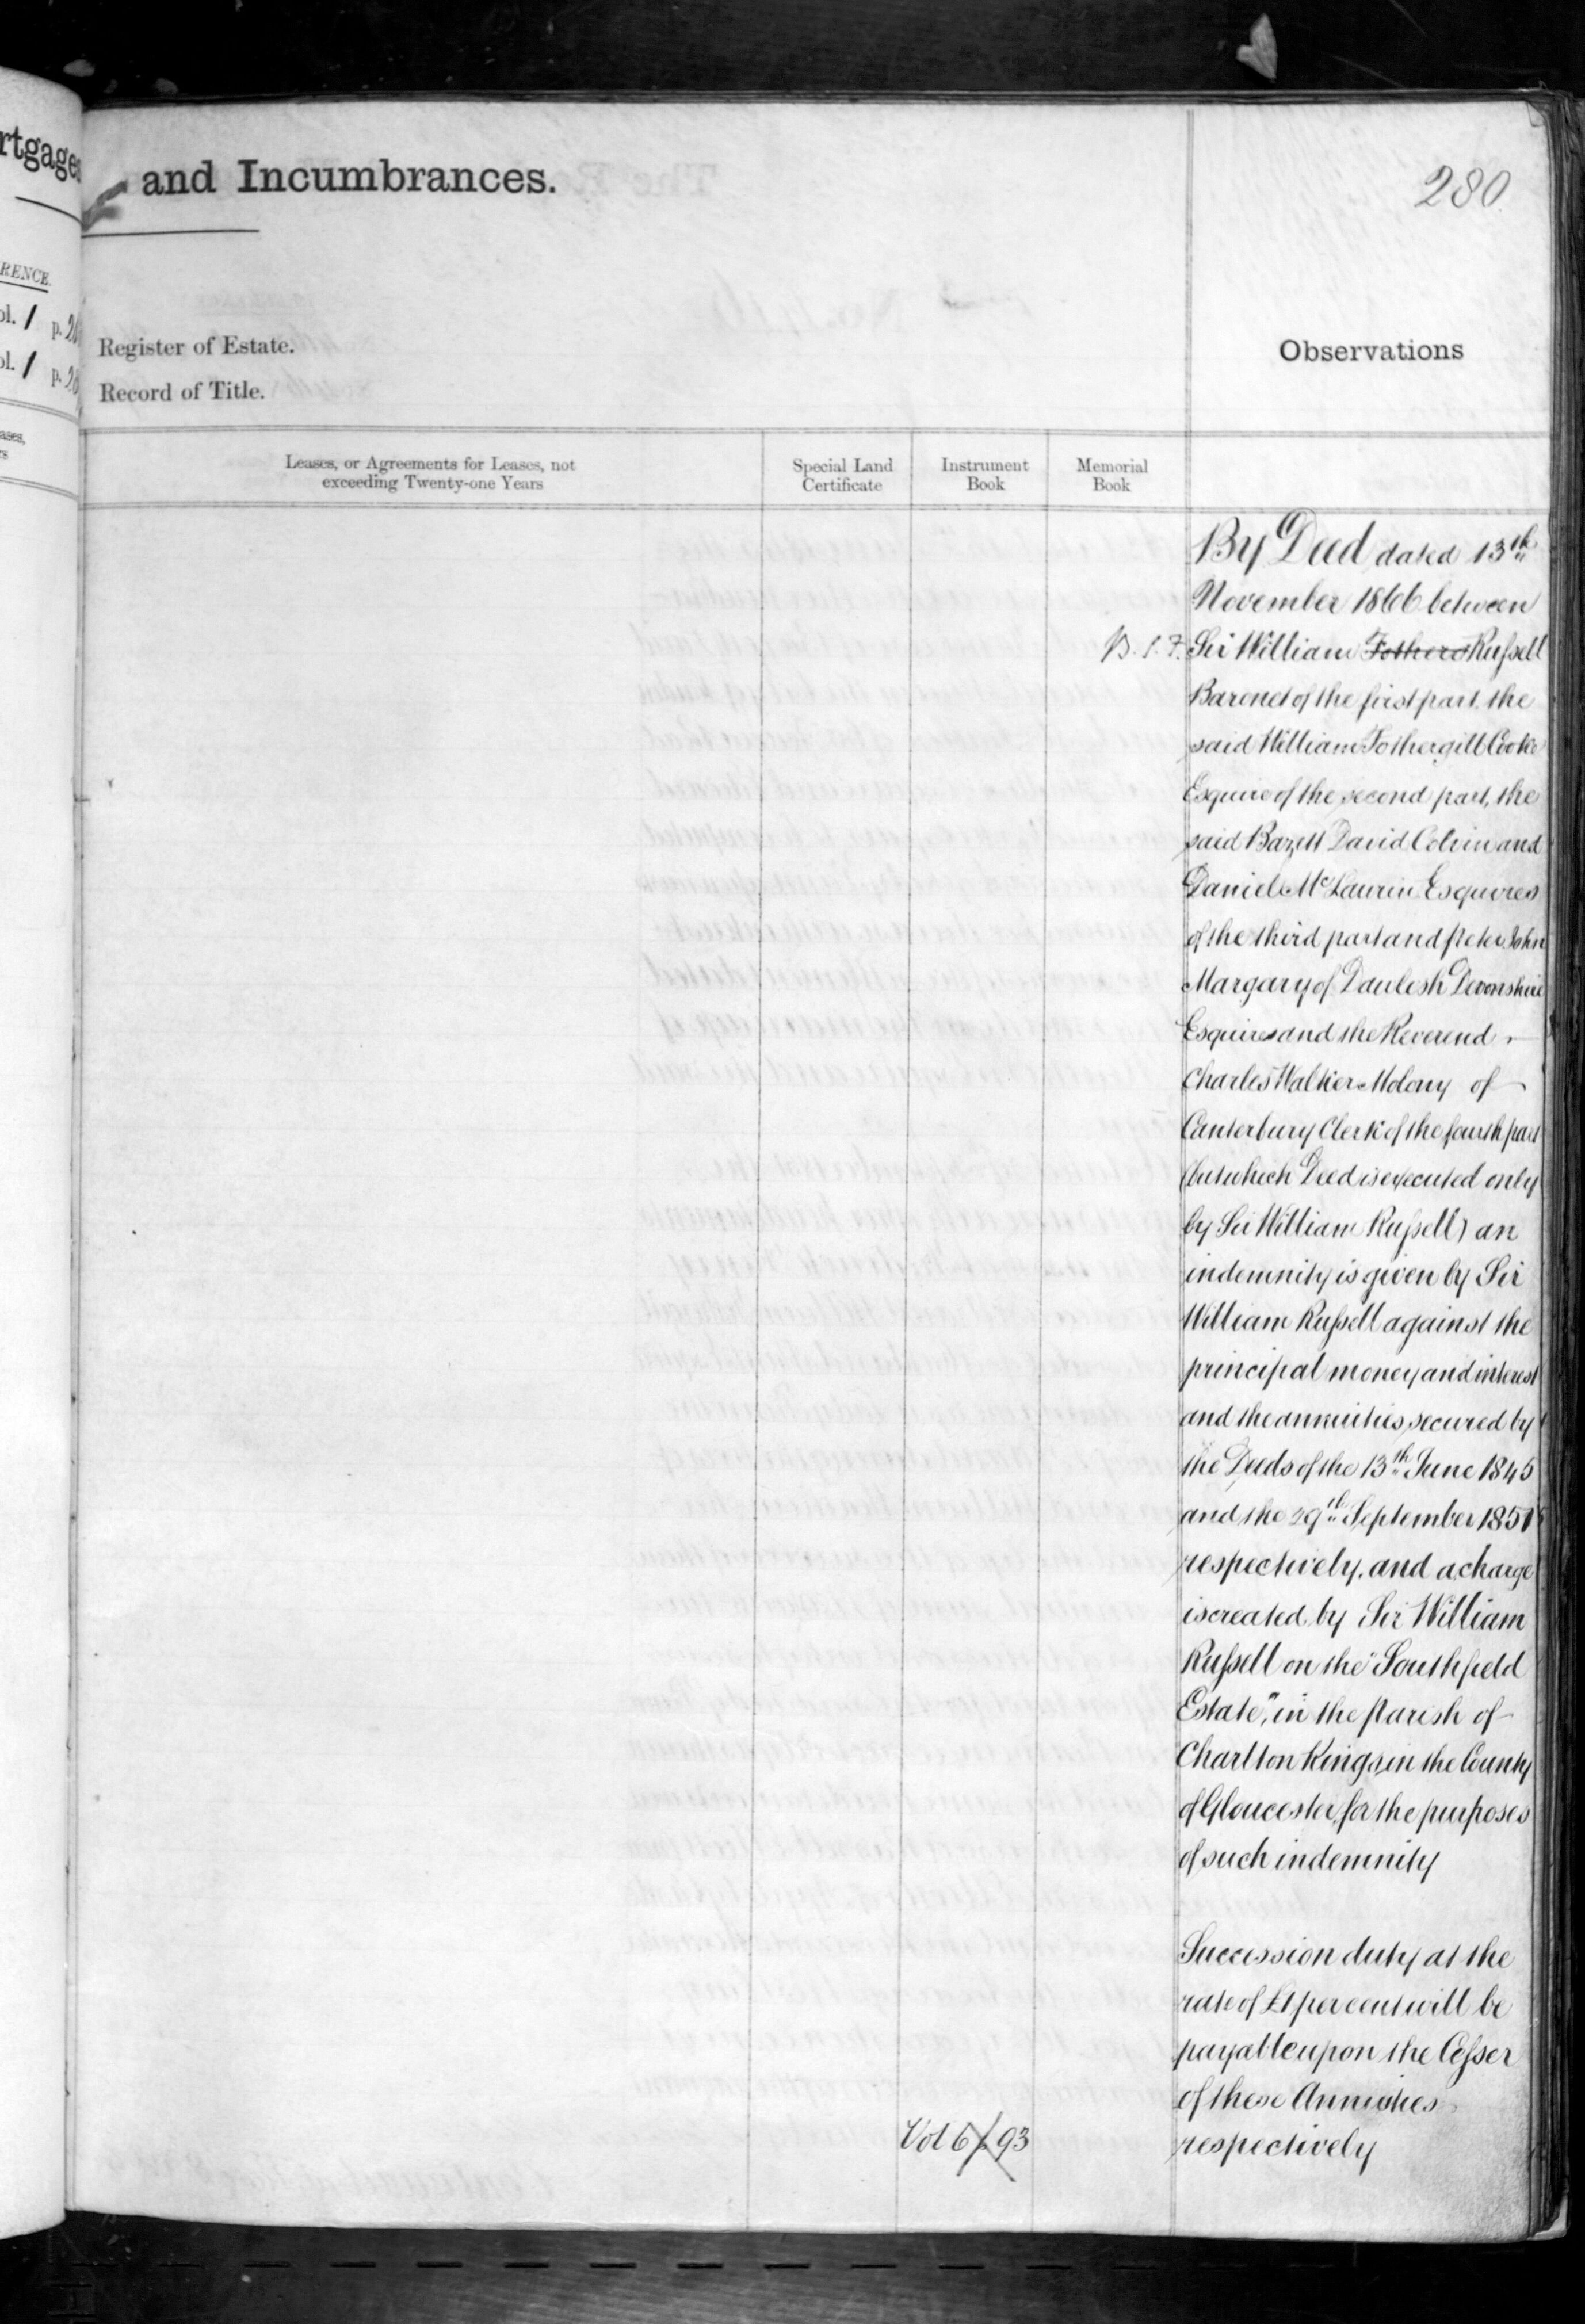 rtgages
and Incumbrances.
280
RENCE.
ol. 1 p.
ol. 1 p.
Register of Estate.
Record of Title.
Observations
ases,
rs
Leases, or Agreements for Leases, not
exceeding Twenty-one Years
Special Land
Certificate
Instrument
Book
Memorial
Book
By Deed dated 13th
November 1866 between
Sir William Fothers Russell
Baronet of the first part. the
said William Fothergill Cooke
Esquire of the second part, the
said Bazett David Colvin and
Daniel McLaurin Esquires
of the third part and Peter John
Margary of Dawlish Devonshire
Esquires and the Reverend
Charles Walker Molony of
Canterbury Clerk of the fourth part
(but which Deed is executed only
by Sir William Russell) an
indemnity is given by Sir
William Russell against the
principal money and interest
and the annuities secured by
the Deeds of the 13th June 1845
and the 29th September 1851
respectively. and a charge
is created by Sir William
Russell on the "Southfield
Estate", in the Parish of
Charlton Kings, in the County
of Gloucester, for the purposes
of such indemnity
Succession duty at the
rate of £1 per cent will be
payable upon the Cesser
of these Annuities
respectively
Vol 6 p 93